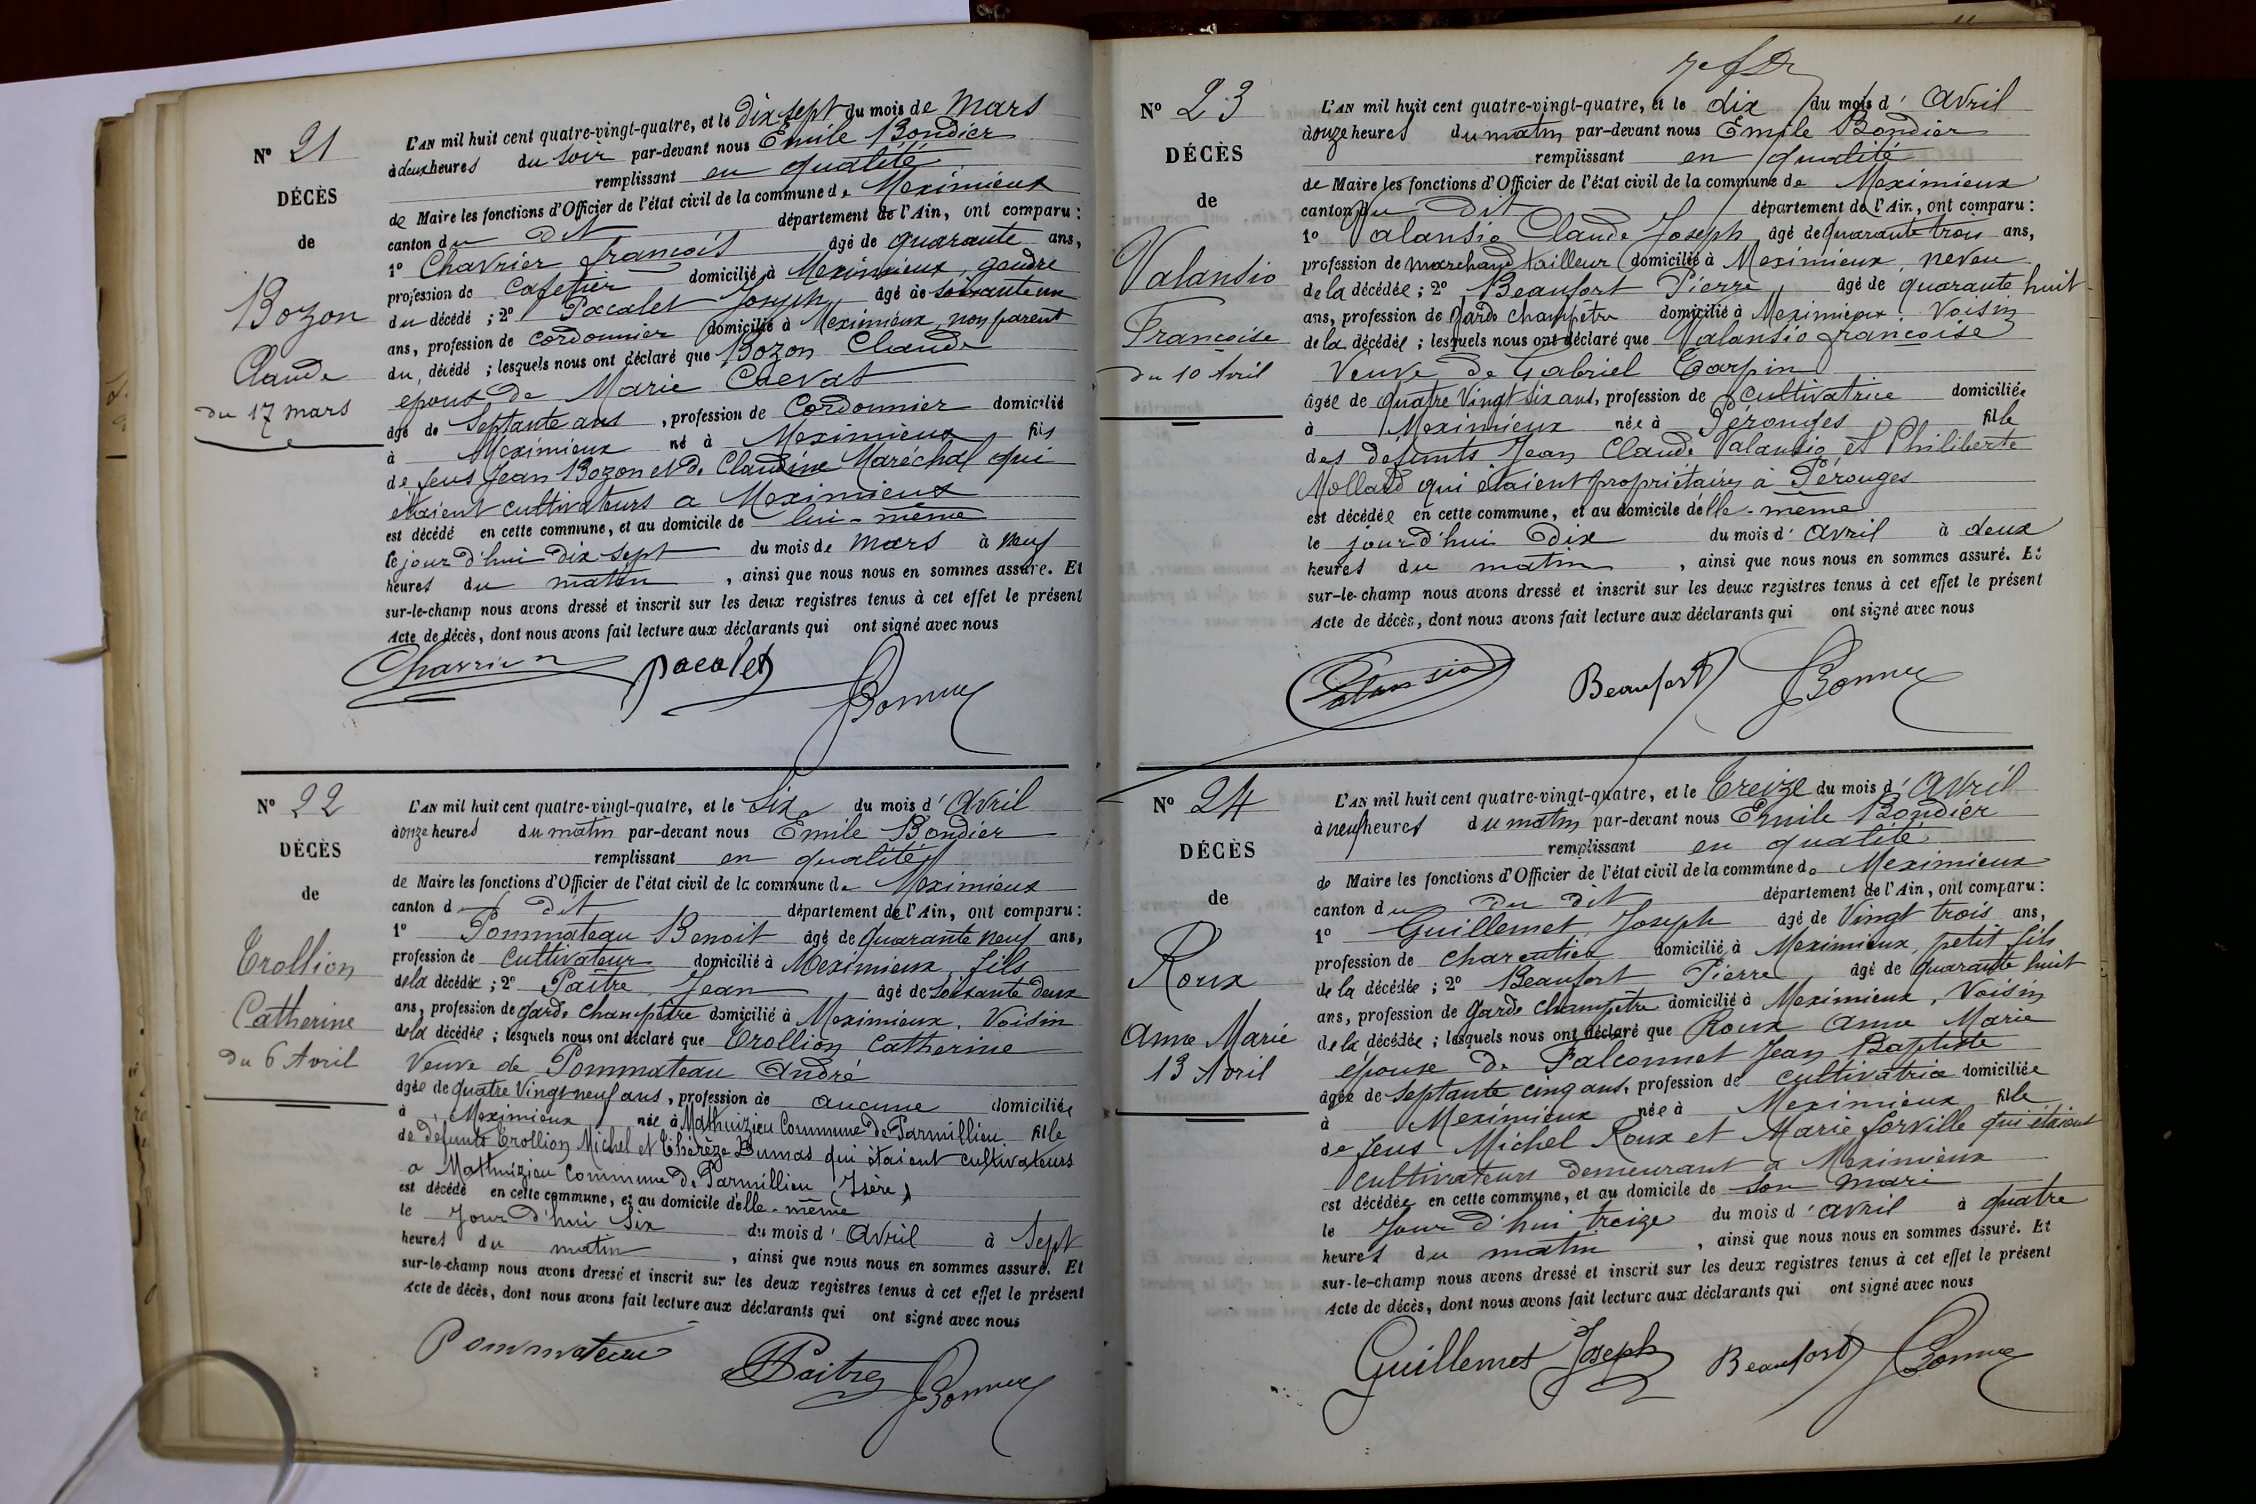 N° 21
DÉCÈS
de
Bozon
Claude
du 17 mars
L'AN mil huit cent quatre-vingt-quatre, et le dix sept du mois de Mars
à deux heures du soir par-devant nous Emile Bondier
remplissant en qualité
de Maire les fonctions d'Officier de l'état civil de la commune de Meximieux
canton du dit département de l'Ain, ont comparu :
1° Chavrier françois âgé de quarante ans,
profession de Cafetier domicilié à Meximieux, gendre
du décédé ; 2° Pacalet Joseph âgé de soixante un
ans, profession de cordonnier domicilié à Meximieux, non parent
du décédé ; lesquels nous ont déclaré que Bozon Claude
époux de Marie Crevat
âgé de Septante ans, profession de Cordonnier domicilié
à Meximieux né à Meximieux fils
de feus Jean Bozon et de Claudine Maréchal qui
étaient cultivateurs a Meximieux
est décédé en cette commune, et au domicile de lui-même
le jour d'hui dix sept du mois de Mars à neuf
heures du matin, ainsi que nous nous en sommes assuré. Et
sur-le-champ nous avons dressé et inscrit sur les deux registres tenus à cet effet le présent
Acte de décès, dont nous avons fait lecture aux déclarants qui ont signé avec nous
Chavrier pacalet
N° 22
DÉCÈS
de
Trollion
Catherine
du 6 Avril
L'AN mil huit cent quatre-vingt-quatre, et le Six du mois d'Avril
à onze heures du matin par-devant nous Emile Bondier
remplissant en qualité
de Maire les fonctions d'Officier de l'état civil de la commune de Meximieux
canton d dit département de l'Ain, ont comparu :
1° Pommateau Benoit âgé de quarante neuf ans,
profession de cultivateur domicilié à Meximieux, fils
de la décédée ; 2° Paître Jean âgé de soixante deux
ans, profession de garde champêtre domicilié à Meximieux, Voisin
de la décédée ; lesquels nous ont déclaré que Trollion Catherine
Veuve de Pommateau André
âgée de quatre Vingt neuf ans, profession de aucune domiciliée
à Meximieux née à Mathuizieu Commune de Parmillieu fille
de défunts Trollion Michel et Thérèze Dumas qui étaient cultivateurs
a Mathuizieu Commune de Parmillieu (Isère)
est décédé en cette commune, et au domicile d'elle-même
le Jour d'hui Six du mois d'Avril à Sept
heures du matin, ainsi que nous nous en sommes assuré. Et
sur-le-champ nous avons dressé et inscrit sur les deux registres tenus à cet effet le présent
Acte de décès, dont nous avons fait lecture aux déclarants qui ont signé avec nous
Pommateau Paitre
N° 23
DÉCÈS
de
Valansio
Françoise
du 10 Avril
L'AN mil huit cent quatre-vingt-quatre, et le dix du mois d'Avril
à onze heures du matin par-devant nous Emile Bondier
remplissant en qualité
de Maire les fonctions d'Officier de l'état civil de la commune de Meximieux
canton du Dit département de l'Ain, ont comparu :
1° Valansio Claude Joseph âgé de quarante trois ans,
profession de marchand tailleur domicilié à Meximieux, neveu
de la décédée ; 2° Beaufort Pierre âgé de quarante huit
ans, profession de garde champêtre domicilié à Meximieux, Voisin
de la décédée ; lesquels nous ont déclaré que Valansio françoise
Veuve de Gabriel Carpin
âgée de quatre Vingt six ans, profession de cultivatrice domiciliée
à Meximieux née à Pérouges fille
des défunts Jean Claude Valansio et Philiberte
Mollard qui étaient propriétaires à Pérouges
est décédée en cette commune, et au domicile d'elle-même
le jour d'hui dix du mois d'avril à deux
heures du matin, ainsi que nous nous en sommes assuré. Et
sur-le-champ nous avons dressé et inscrit sur les deux registres tenus à cet effet le présent
Acte de décès, dont nous avons fait lecture aux déclarants qui ont signé avec nous
Valansio Beaufort
N° 24
DÉCÈS
de
Roux
Anne Marie
13 Avril
L'AN mil huit cent quatre-vingt-quatre, et le Treize du mois d'Avril
à neuf heures du matin par-devant nous Emile Bondier
remplissant en qualité
de Maire les fonctions d'Officier de l'état civil de la commune de Meximieux
canton du du dit département de l'Ain, ont comparu :
1° Guillemet Joseph âgé de Vingt trois ans,
profession de charcutier domicilié à Meximieux, petit fils
de la décédée ; 2° Beaufort Pierre âgé de quarante huit
ans, profession de garde champêtre domicilié à Meximieux, Voisin
de la décédée ; lesquels nous ont déclaré que Roux Anne Marie
épouse de Falconnet Jean Baptiste
âgée de septante cinq ans, profession de cultivatrice domiciliée
à Meximieux née à Meximieux fille
de feus Michel Roux et Marie Forville qui étaient
cultivateurs demeurant a Meximieux
est décédée en cette commune, et au domicile de son mari
le Jour d'hui treize du mois d'avril à quatre
heures du matin, ainsi que nous nous en sommes assuré. Et
sur-le-champ nous avons dressé et inscrit sur les deux registres tenus à cet effet le présent
Acte de décès, dont nous avons fait lecture aux déclarants qui ont signé avec nous
Guillemet Joseph Beaufort